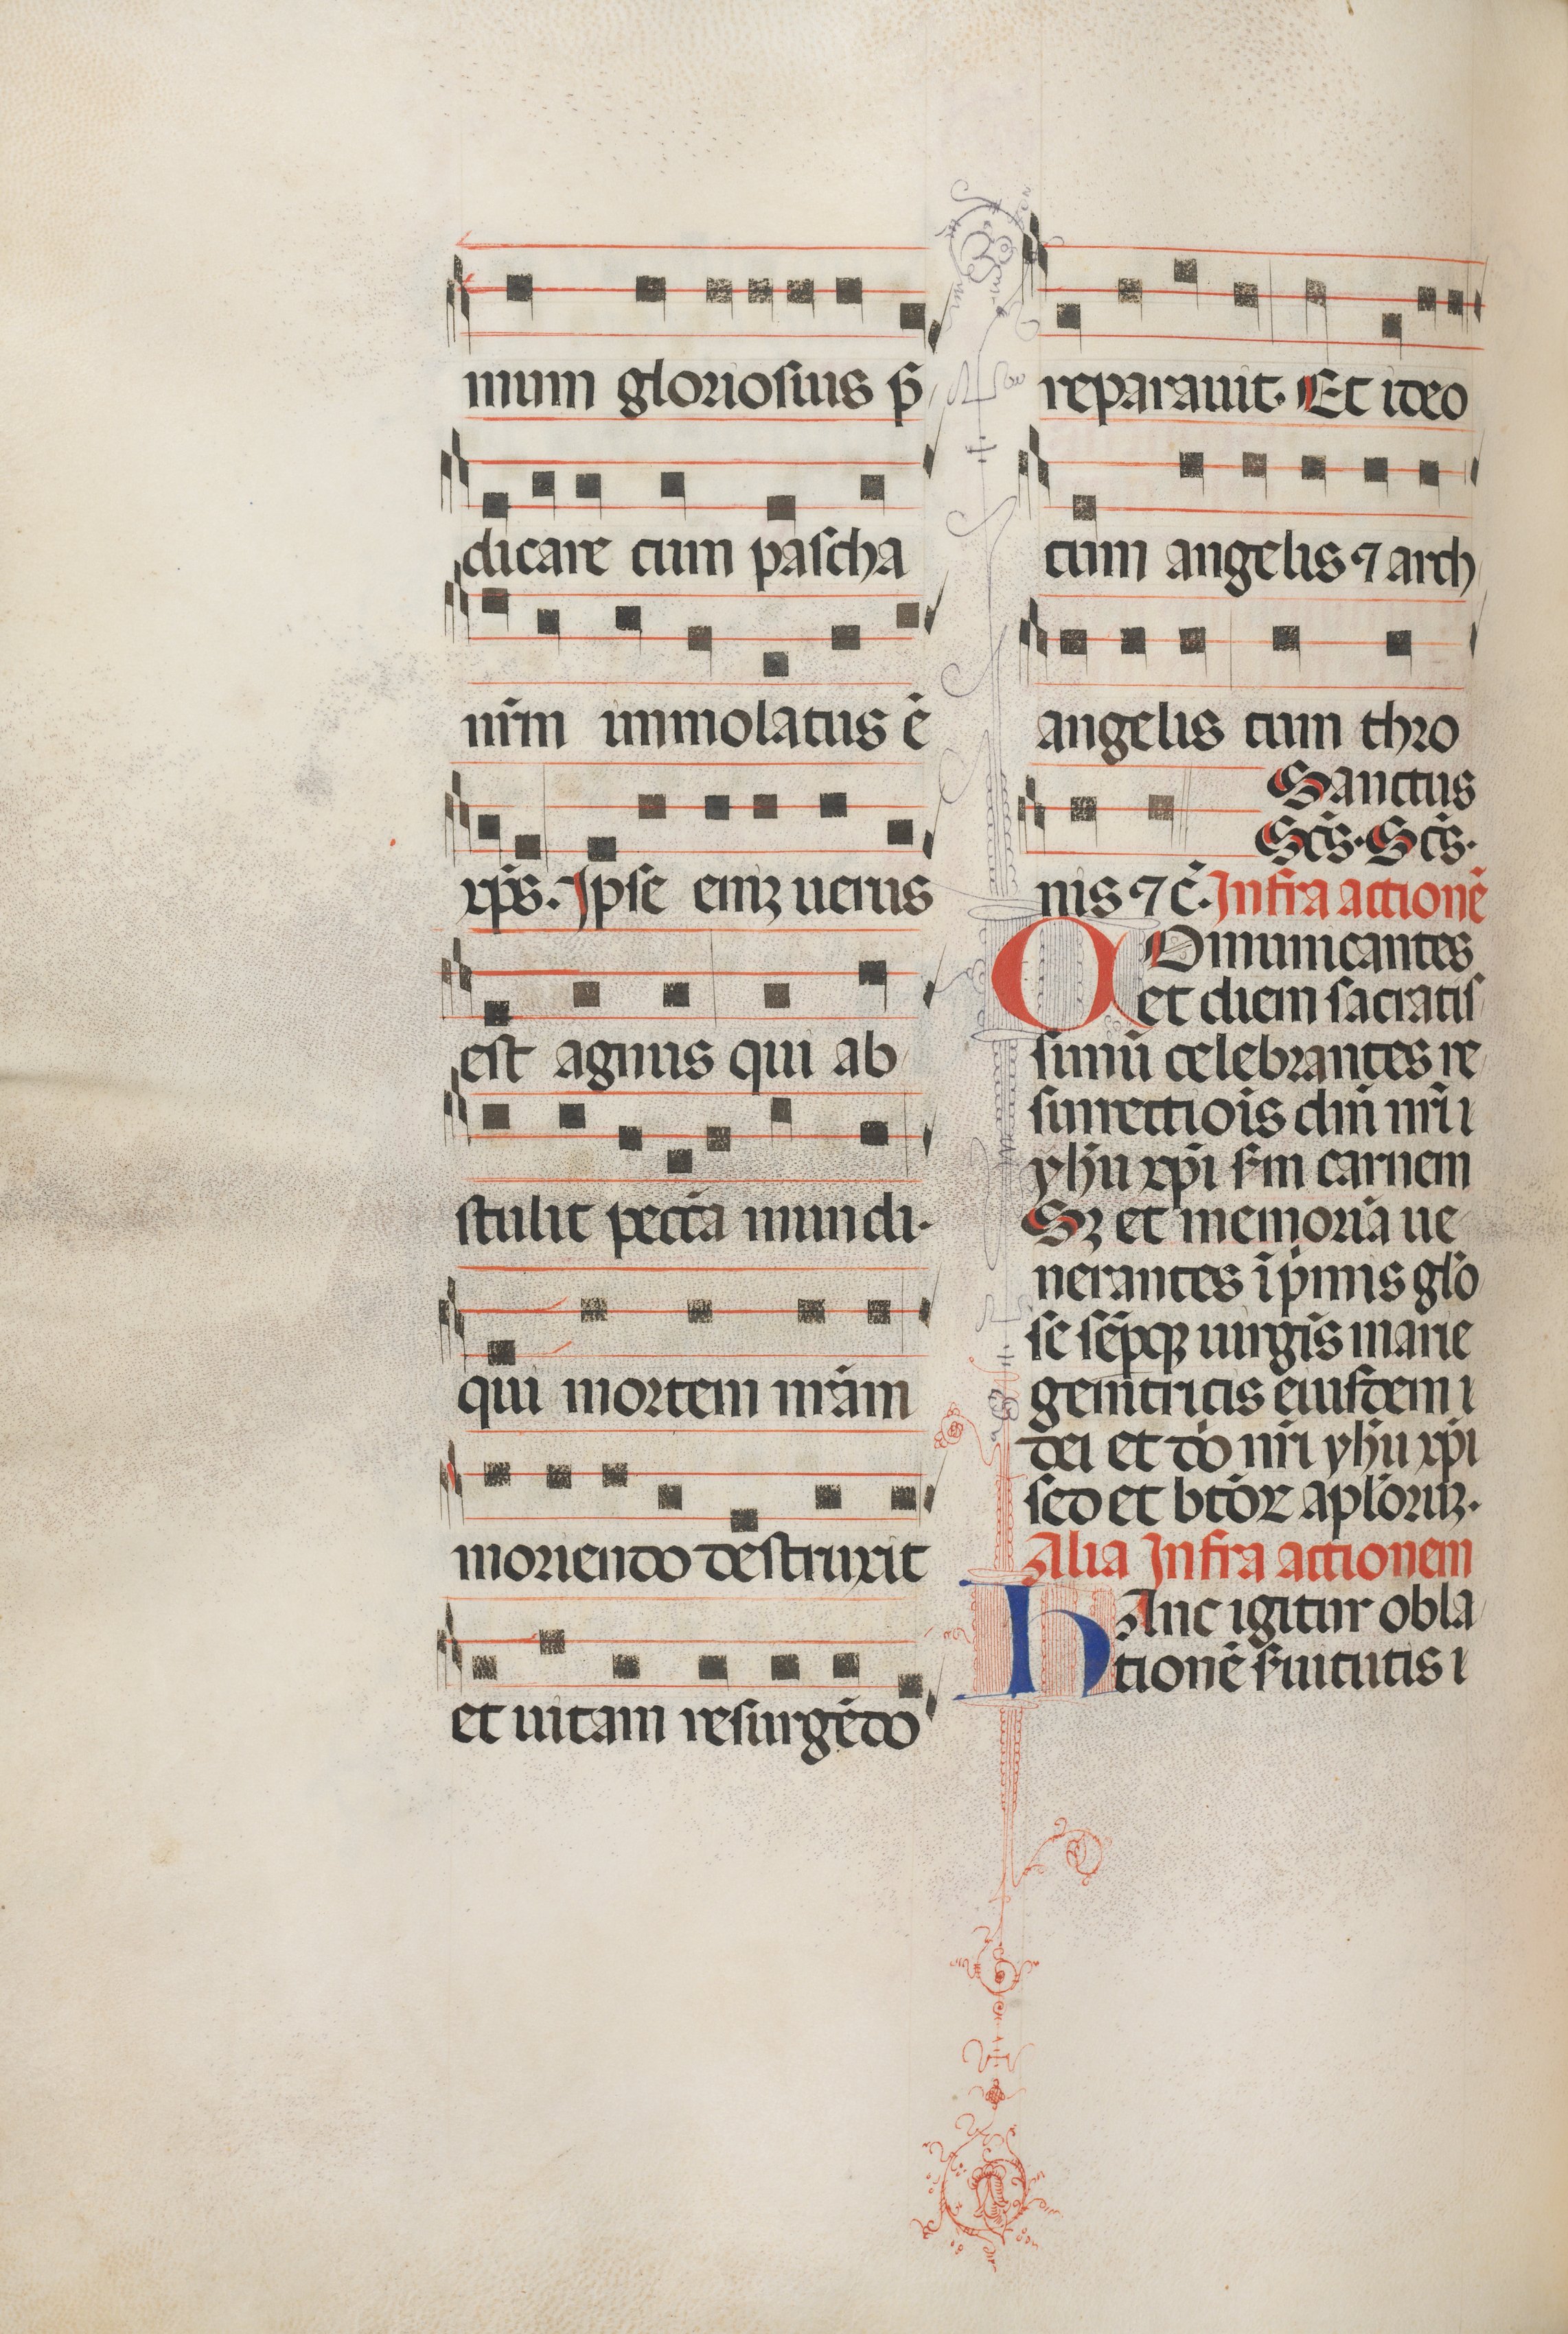 mum gloriosius p̄
dicare cum pascha
nr̄m immolatus ē
xp̄s. Ipse eniꝫ uerus
est agnus qui ab
stulit pecc̄a mundi.
qui mortem nr̄am
moriendo destruxit
et uitam resurgēdo
reparauit. Et ideo
cum angelis ⁊ arch
angelis cum thro
Sanctus
Sc̄s. Sc̄s.
nis ⁊ c̄. Infra actionē
COmunicantes
et diem sacratis
simū celebrantes re
surrectiōis dn̄i nr̄i i
yhū xp̄i sm̄ carnem
Sꝫ et memoriā ue
nerantes ī pͥmis glo
se sēpqꝫ uirgīs marie
genitricis eiusdem i
dei et dō nr̄i yhū xp̄i
sed et btōꝝ aplōruꝫ.
Alia Infra actionem
hAnc igitur obla
tionē s̄uitutis i